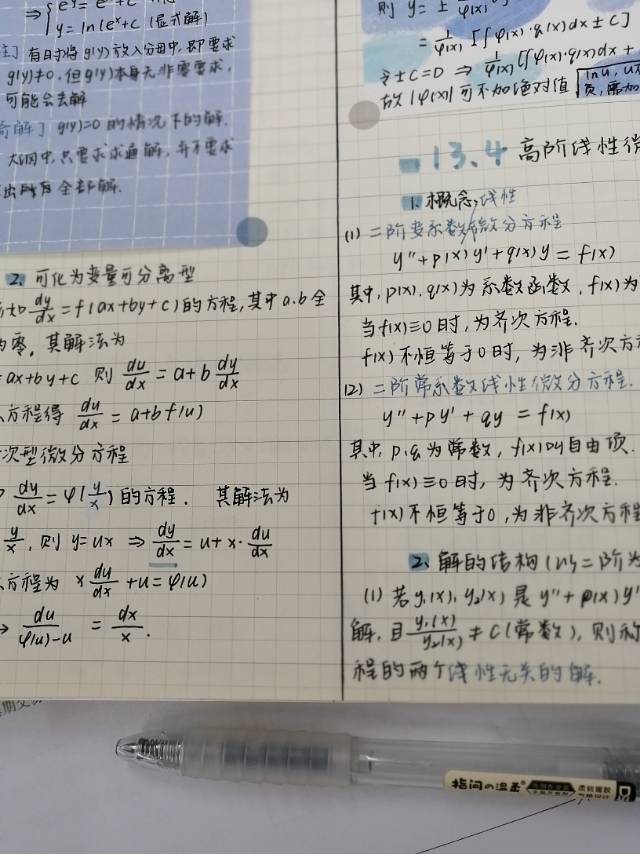 ⇒{e^y = e^x + C
y = ln(e^x+C (显式解)
注] 有时将g(y)放入分母中,即要求
g(y)≠0,但g(y)本身无非零要求,
可能会丢解
奇解] g(y)=0的情况下的解.
大纲中,只要求求通解,并不要求
出所有全部解.
2、可化为变量可分离型
形如dy/dx=f(ax+by+c)的方程,其中a.b全
为零,其解法为
=ax+by+c 则 du/dx = a+b dy/dx
方程得 du/dx = a+bf(u)
次型微分方程
dy/dx=φ(y/x)的方程. 其解法为
y/x, 则 y=ux ⇒ dy/dx = u+x·du/dx
方程为 x du/dx +u=φ(u)
→ du/φ(u)-u = dx/x.
则 y= ± 1/φ(x)
= ±1/φ(x) [∫φ(x)·q(x)dx±C]
令±C=D ⇒ 1/φ(x) [∫φ(x)·q(x)dx+
故|φ(x)|可不加绝对值
13.4 高阶线性微
1. 概念,线性
(1) 二阶变系数微分方程
y''+p(x)y'+q(x)y=f(x)
其中,p(x).q(x)为系数函数,f(x)为
当f(x)≡0时,为齐次方程.
f(x)不恒等于0时,为非齐次方
(2) 二阶常系数线性微分方程.
y''+py'+qy=f(x)
其中,p,q为常数,f(x)叫自由项.
当f(x)≡0时,为齐次方程.
f(x)不恒等于0,为非齐次方程
2、解的结构(以二阶为
(1) 若y₁(x),y₂(x)是y''+p(x)y'
解,且y₁(x)/y₂(x)≠C(常数),则称
程的两个线性无关的解.
指间の温柔